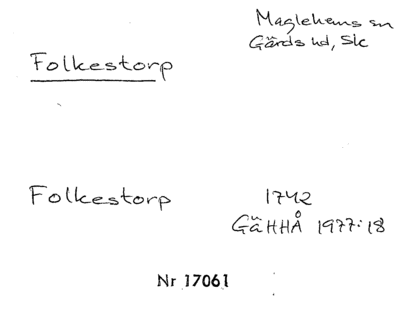 Maglehems sn
Gärds hd, Sk
Folkestorp
Folkestorp 1742
GäHHÅ 1977:18
Nr 17061